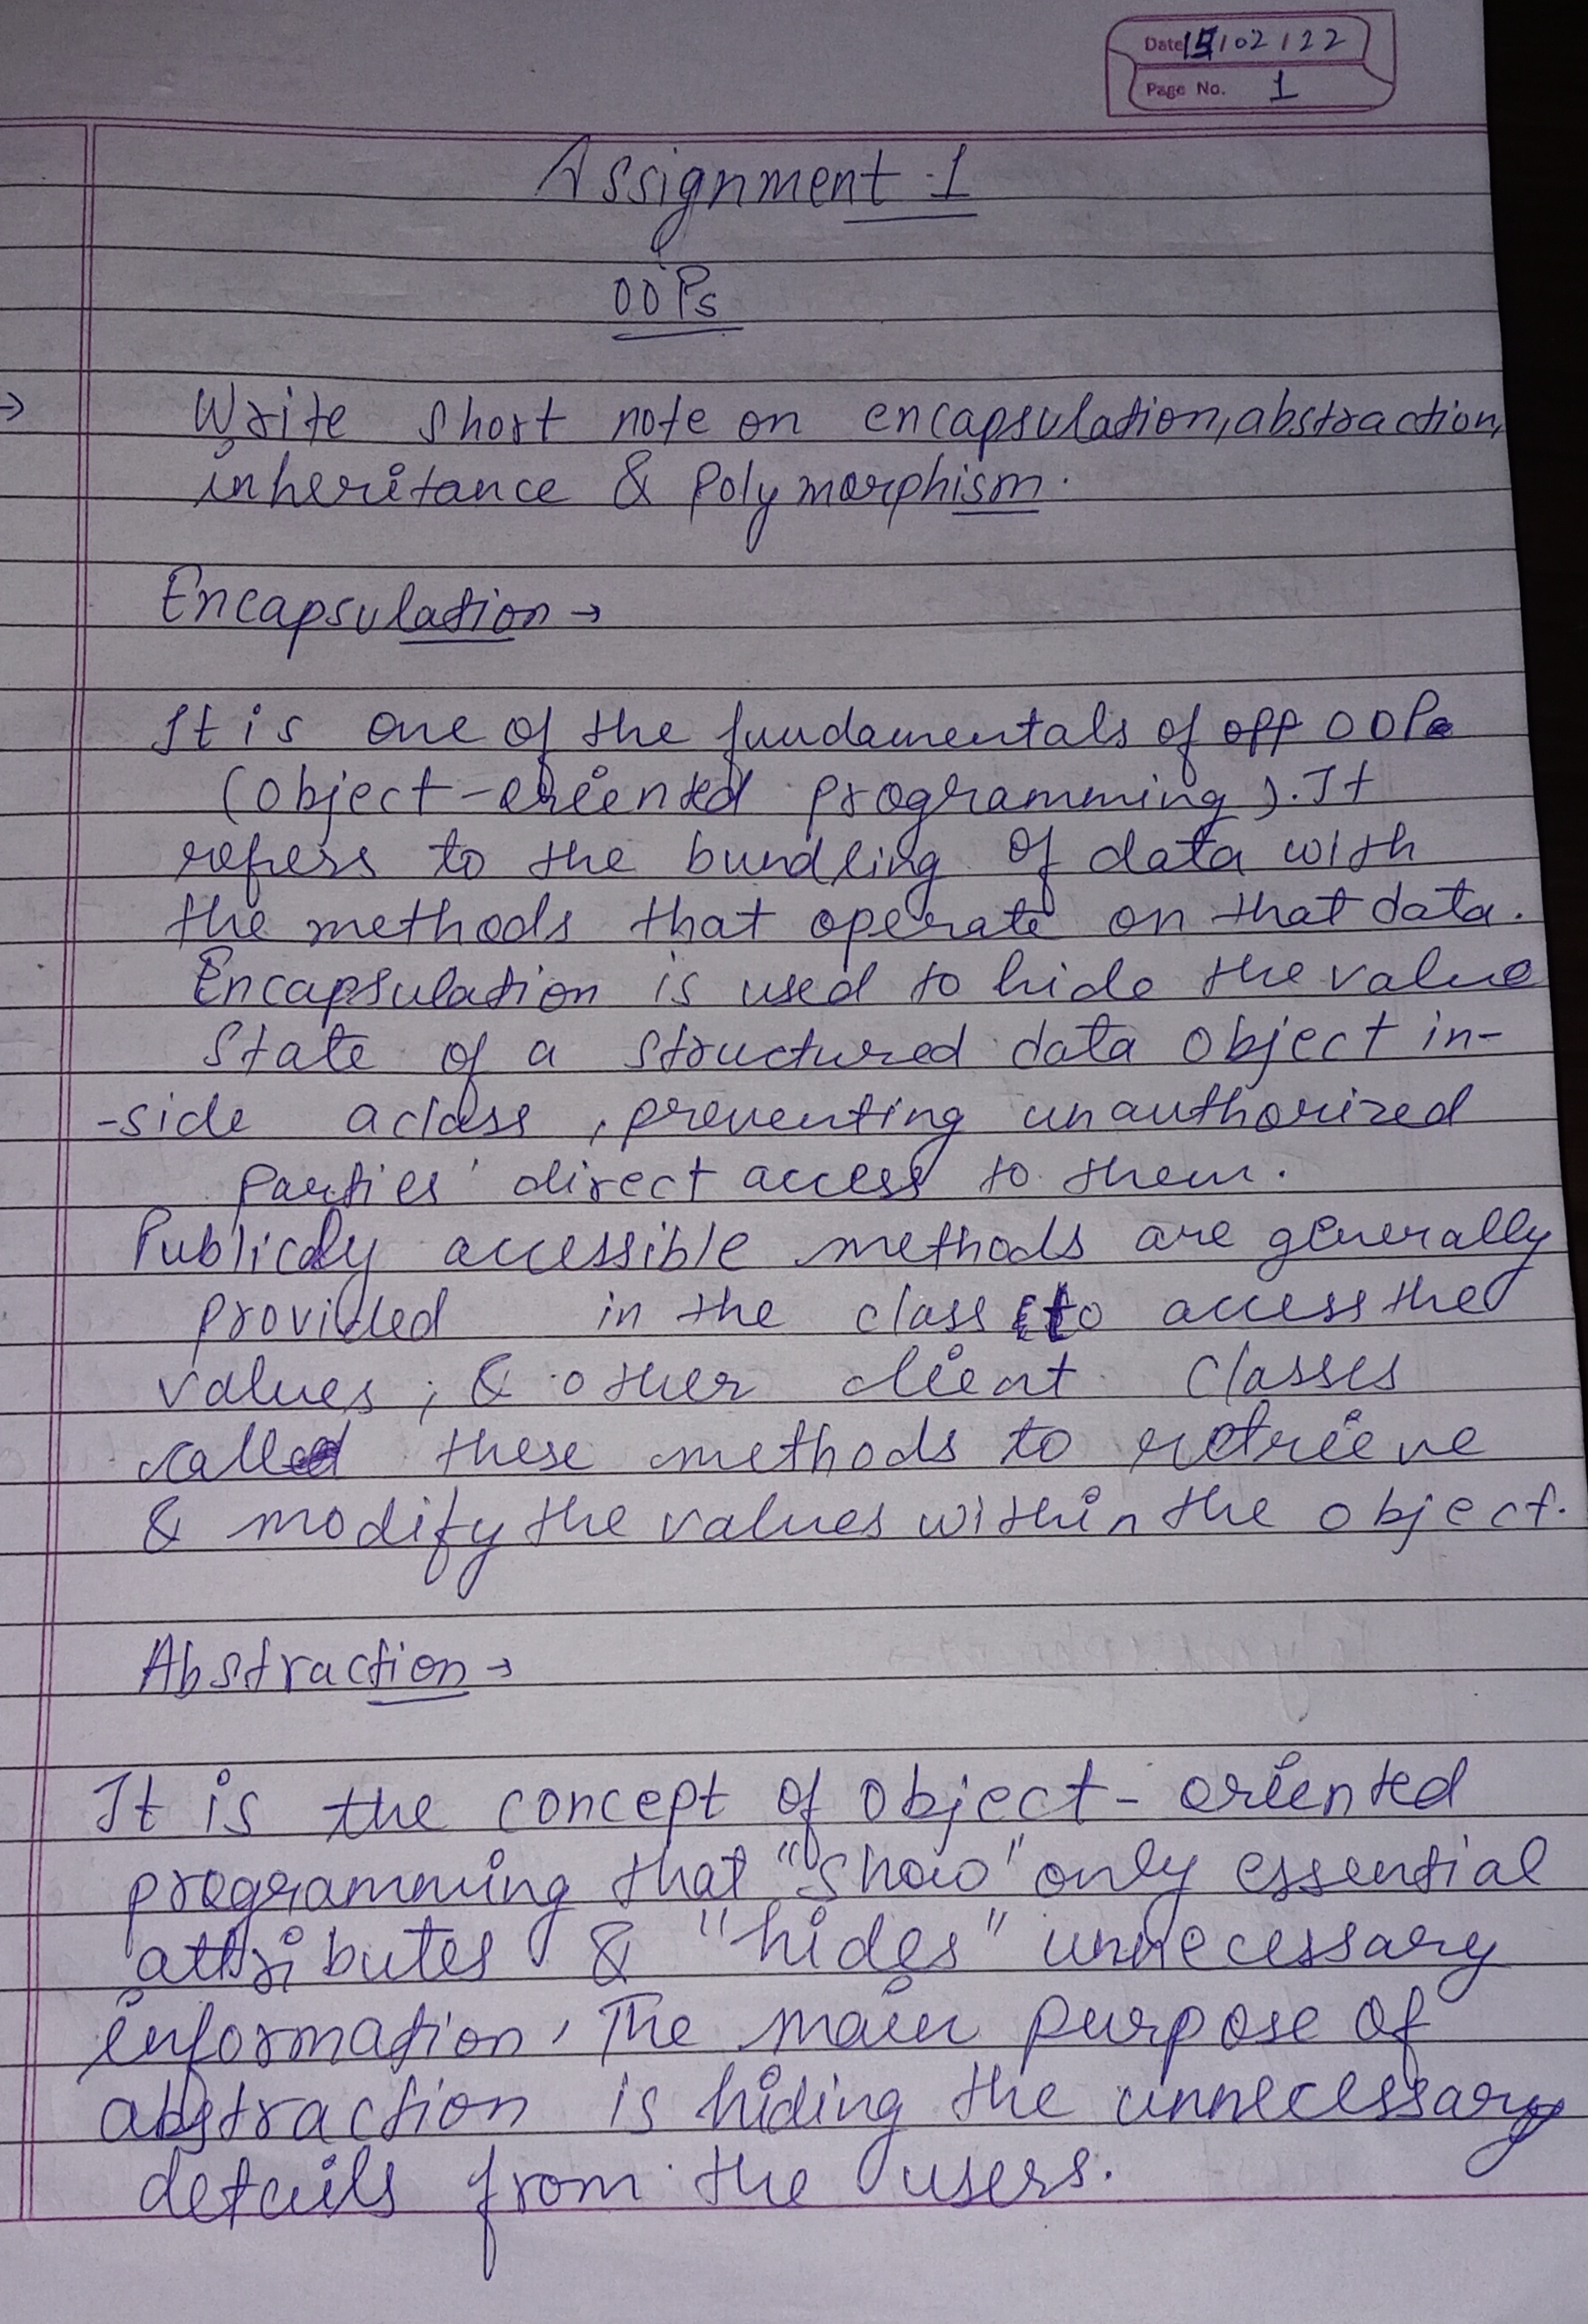 Date 15/02/22
Page No. 1
Assignment-1
OOPs
→ Write short note on encapsulation, abstraction,
inheritance & polymorphism.
Encapsulation →
It is one of the fundamentals of OOPs
(object-oriented programming). It
refers to the bundling of data with
the methods that operate on that data.
Encapsulation is used to hide the value
state of a structured data object in-
-side a class, preventing unauthorized
parties' direct access to them.
Publicly accessible methods are generally
provided in the class to access the
values, & other client classes
called these methods to retrieve
& modify the values within the object.
Abstraction →
It is the concept of object-oriented
programming that "show" only essential
attributes & "hides" unnecessary
information. The main purpose of
abstraction is hiding the unnecessary
details from the users.